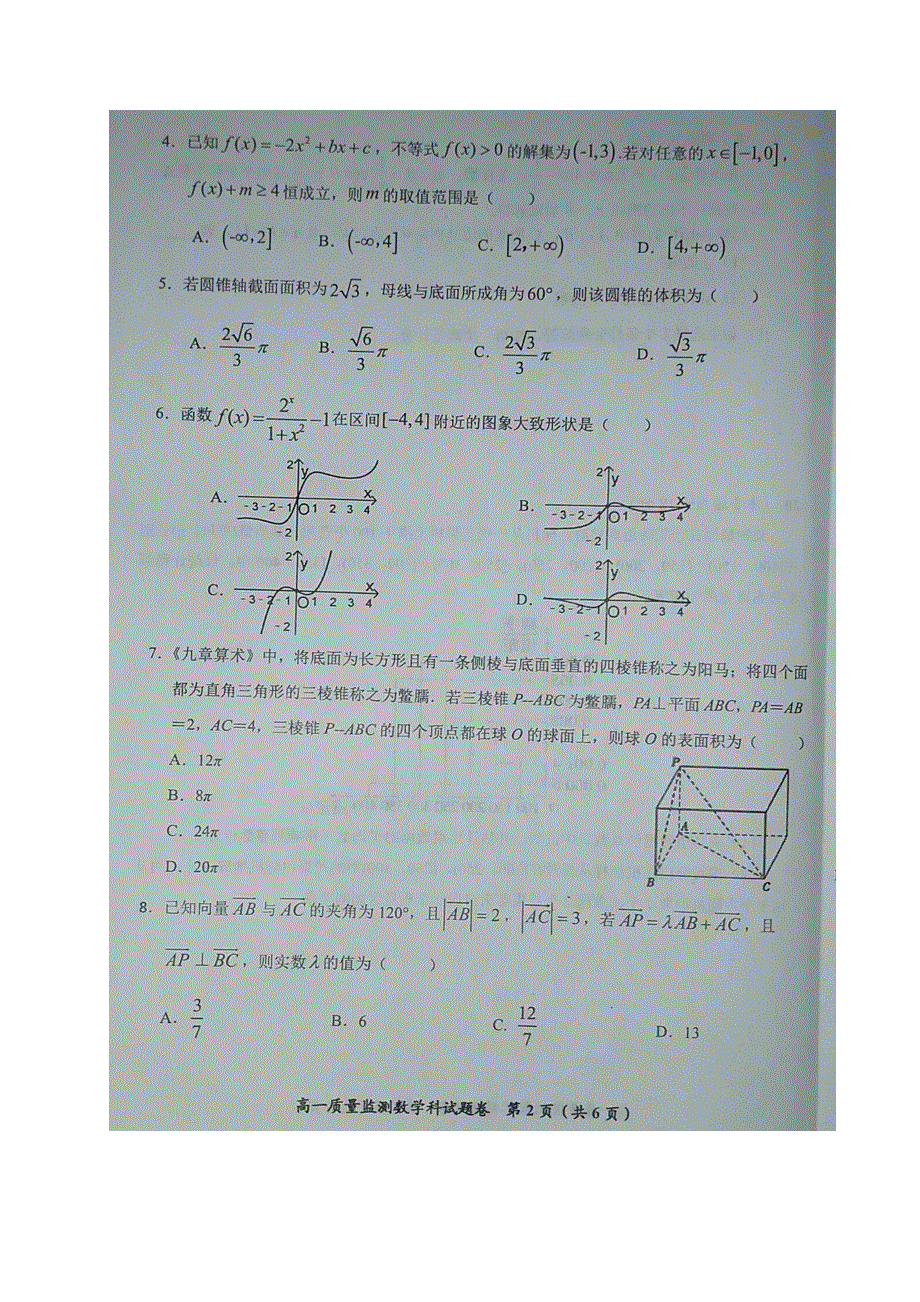 4．已知 f(x)=−2x²+bx+c，不等式 f(x)>0 的解集为(-1,3).若对任意的 x∈[−1,0]，
f(x)+m≥4恒成立，则m的取值范围是（　　）
A．(-∞,2]　B．(-∞,4]　C．[2,+∞)　D．[4,+∞)
5．若圆锥轴截面面积为2√3，母线与底面所成角为60°，则该圆锥的体积为（　　）
A．2√6/3 π　B．√6/3 π　C．2√3/3 π　D．√3/3 π
6．函数 f(x)=2ˣ/(1+x²)−1在区间[−4,4]附近的图象大致形状是（　　）
A．　2 y x -3-2-1 O 1 2 3 4 -2
B．　2 y x -3-2-1 O 1 2 3 4 -2
C．　2 y x -3-2-1 O 1 2 3 4 -2
D．　2 y x -3-2-1 O 1 2 3 4 -2
7．《九章算术》中，将底面为长方形且有一条侧棱与底面垂直的四棱锥称之为阳马；将四个面
都为直角三角形的三棱锥称之为鳖臑．若三棱锥 P–ABC 为鳖臑，PA⊥平面 ABC，PA＝AB
＝2，AC＝4，三棱锥 P–ABC 的四个顶点都在球 O 的球面上，则球 O 的表面积为（　　）
A．12π
B．8π
C．24π
D．20π
P
A
B
C
8．已知向量 AB→ 与 AC→ 的夹角为 120°，且|AB→|=2，|AC→|=3，若 AP→=λAB→+AC→，且
AP→⊥BC→，则实数λ的值为（　　）
A．3/7　B．6　C．12/7　D．13
高一质量监测数学科试题卷　第 2 页（共 6 页）